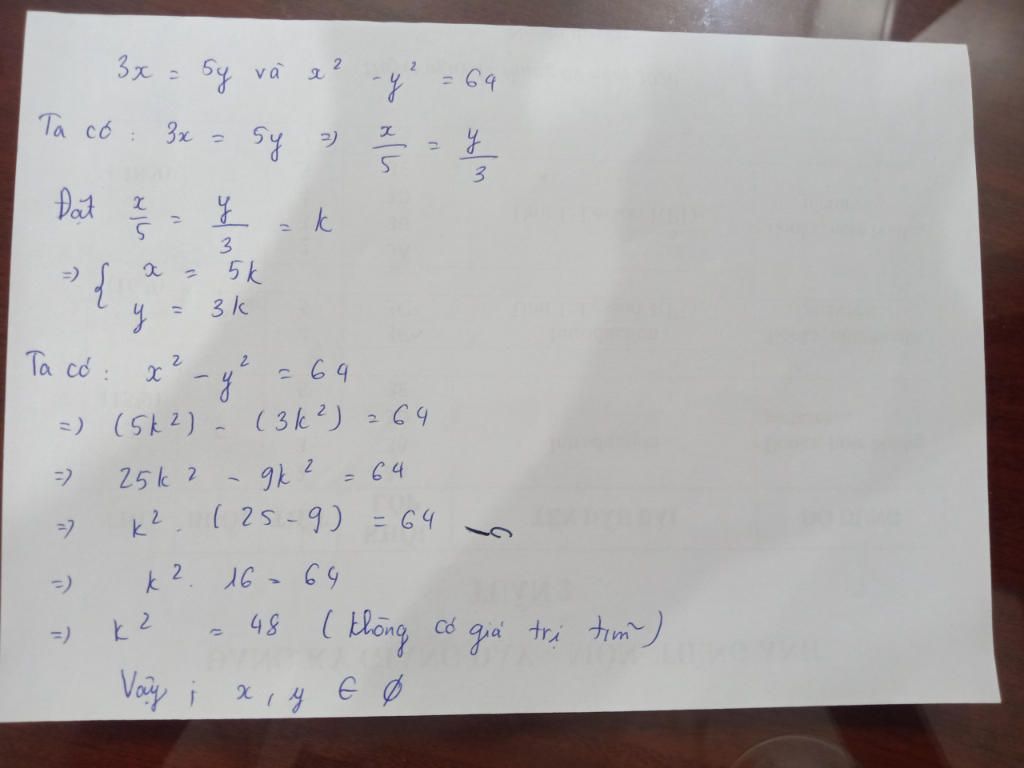 3x = 5y và x² - y² = 64
Ta có : 3x = 5y => x/5 = y/3
Đặt x/5 = y/3 = k
=> { x = 5k
y = 3k
Ta có : x² - y² = 64
=> (5k²) - (3k²) = 64
=> 25k² - 9k² = 64
=> k² . (25 - 9) = 64
=> k² . 16 = 64
=> k² = 48 (không có giá trị tìm)
Vậy ; x, y ∈ ∅